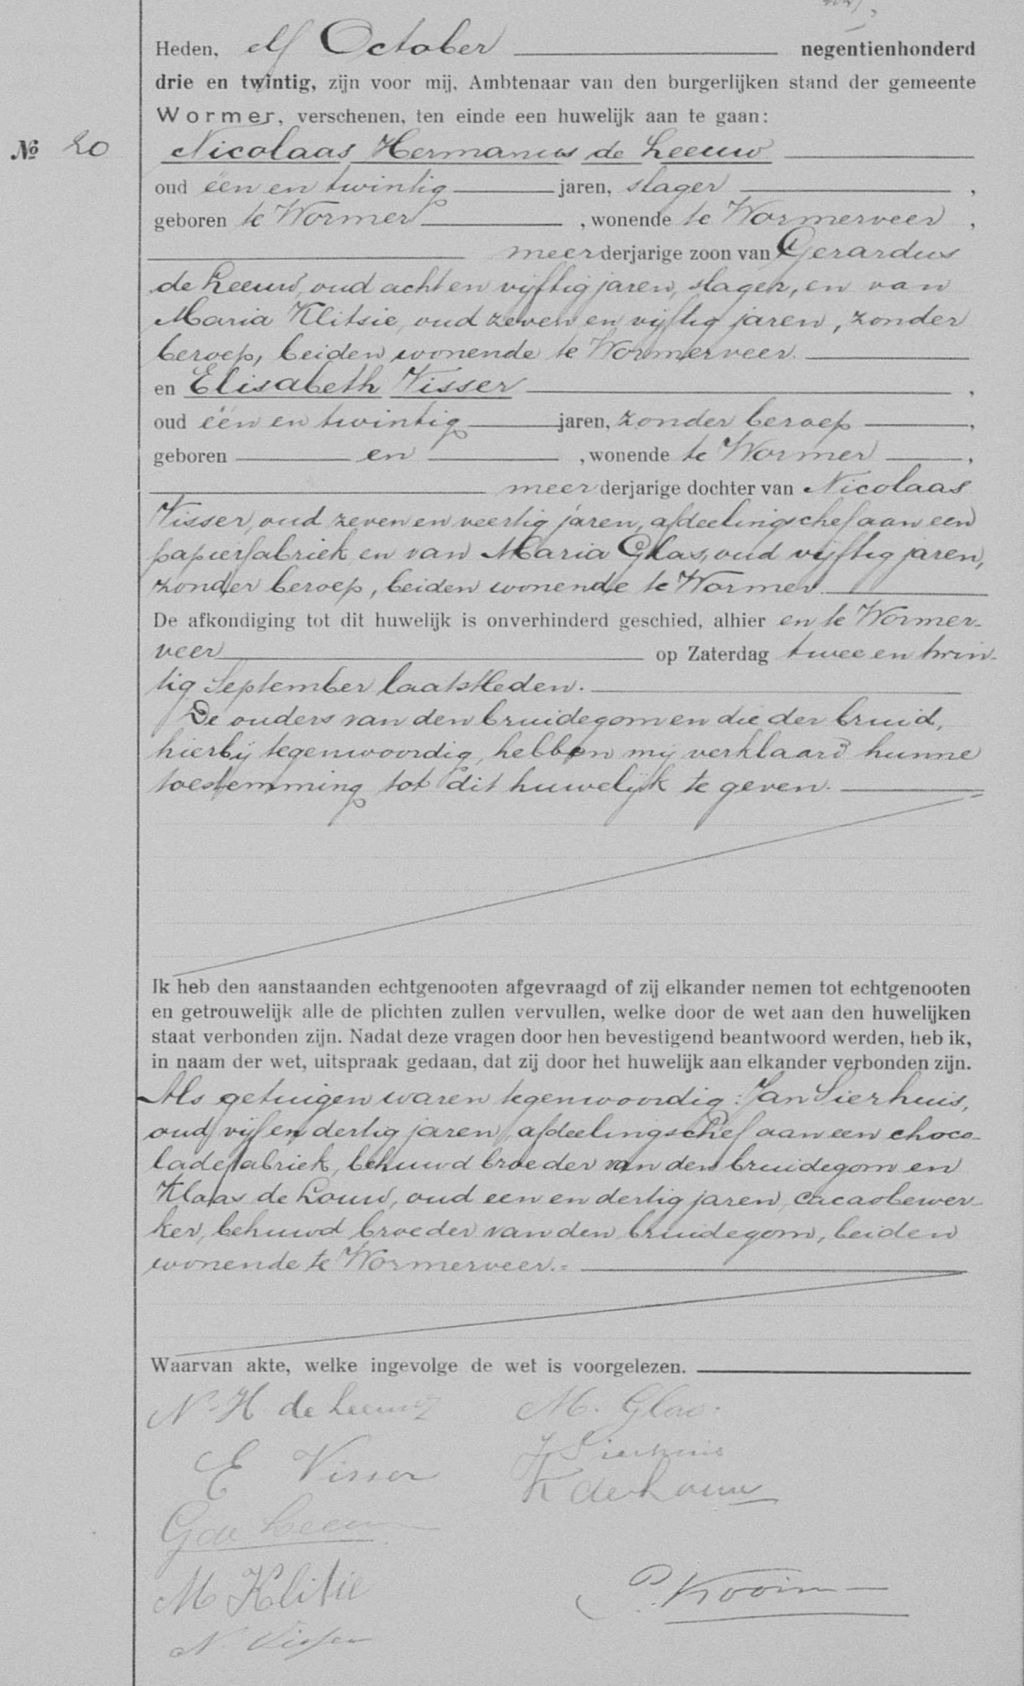 Heden, elf October negentienhonderd
drie en twintig, zijn voor mij, Ambtenaar van den burgerlijken stand der gemeente
Wormer, verschenen, ten einde een huwelijk aan te gaan:
№ 20 Nicolaas Hermanus de Leeuw
oud één en twintig jaren, slager,
geboren te Wormer, wonende te Wormerveer,
meerderjarige zoon van Gerardus
de Leeuw, oud acht en vijftig jaren, slager, en van
Maria Klitsie, oud zeven en vijftig jaren, zonder
beroep, beiden wonende te Wormerveer.
en Elisabeth Visser,
oud één en twintig jaren, zonder beroep,
geboren en, wonende te Wormer,
meerderjarige dochter van Nicolaas
Visser, oud zeven en veertig jaren, afdeelingschef aan een
papierfabriek en van Maria Glas, oud vijftig jaren,
zonder beroep, beiden wonende te Wormer.
De afkondiging tot dit huwelijk is onverhinderd geschied, alhier en te Wormer-
veer op Zaterdag twee en twin-
tig September laatstleden.
De ouders van den bruidegom en die der bruid,
hierbij tegenwoordig, hebben mij verklaard hunne
toestemming tot dit huwelijk te geven.
Ik heb den aanstaanden echtgenooten afgevraagd of zij elkander nemen tot echtgenooten
en getrouwelijk alle de plichten zullen vervullen, welke door de wet aan den huwelijken
staat verbonden zijn. Nadat deze vragen door hen bevestigend beantwoord werden, heb ik,
in naam der wet, uitspraak gedaan, dat zij door het huwelijk aan elkander verbonden zijn.
Als getuigen waren tegenwoordig: Jan Sierhuis,
oud vijf en dertig jaren, afdeelingschef aan een choco-
ladefabriek, behuwd broeder van den bruidegom en
Klaas de Louw, oud een en dertig jaren, cacaobewer-
ker, behuwd broeder van den bruidegom, beiden
wonende te Wormerveer.=
Waarvan akte, welke ingevolge de wet is voorgelezen.
N. H. de Leeuw M. Glas.
E Visser J Sierhuis
K de Louw
G de Leeuw
M Klitsie P. Kooim
N. Visser